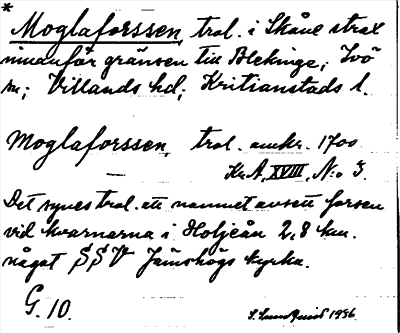 *
Moglaforssen, trol. i Skåne strax
innanför gränsen till Blekinge; Ivö
sn; Villands hd; Kristianstads l.
Moglaforssen, trol. omkr. 1700
Kr. A, XVIII, N:o 3.
Det synes trol. att namnet avsett forsen
vid kvarnarna i Holjeån 2,8 km.
något SSV Jämshögs kyrka.
G. 10.
1936